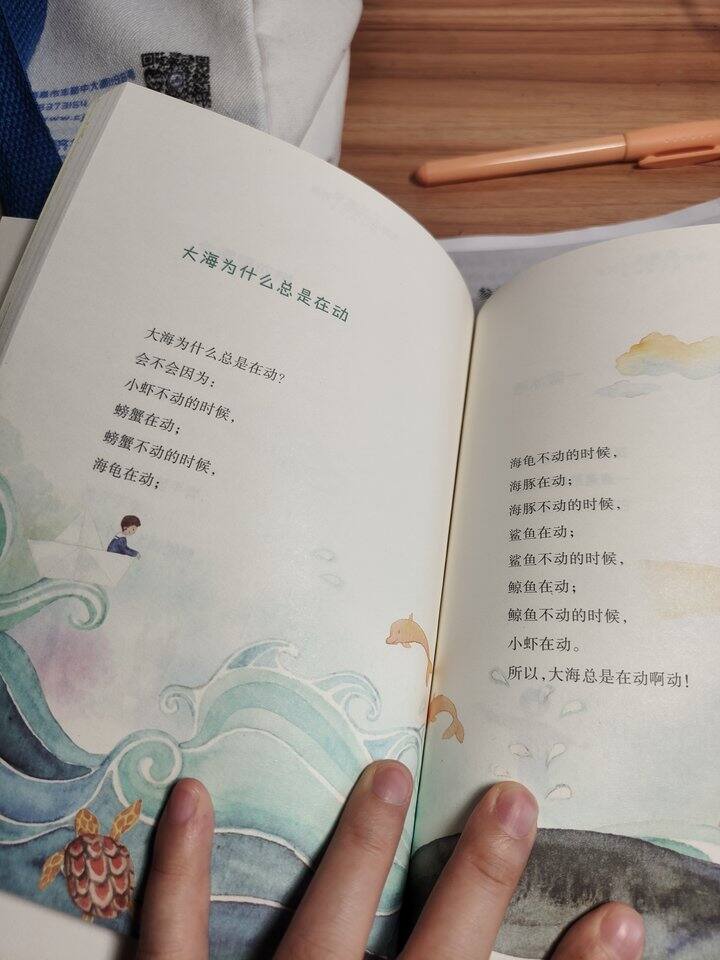 大海为什么总是在动
大海为什么总是在动?
会不会因为:
小虾不动的时候,
螃蟹在动;
螃蟹不动的时候,
海龟在动;
海龟不动的时候,
海豚在动;
海豚不动的时候,
鲨鱼在动;
鲨鱼不动的时候,
鲸鱼在动;
鲸鱼不动的时候,
小虾在动。
所以,大海总是在动啊动!